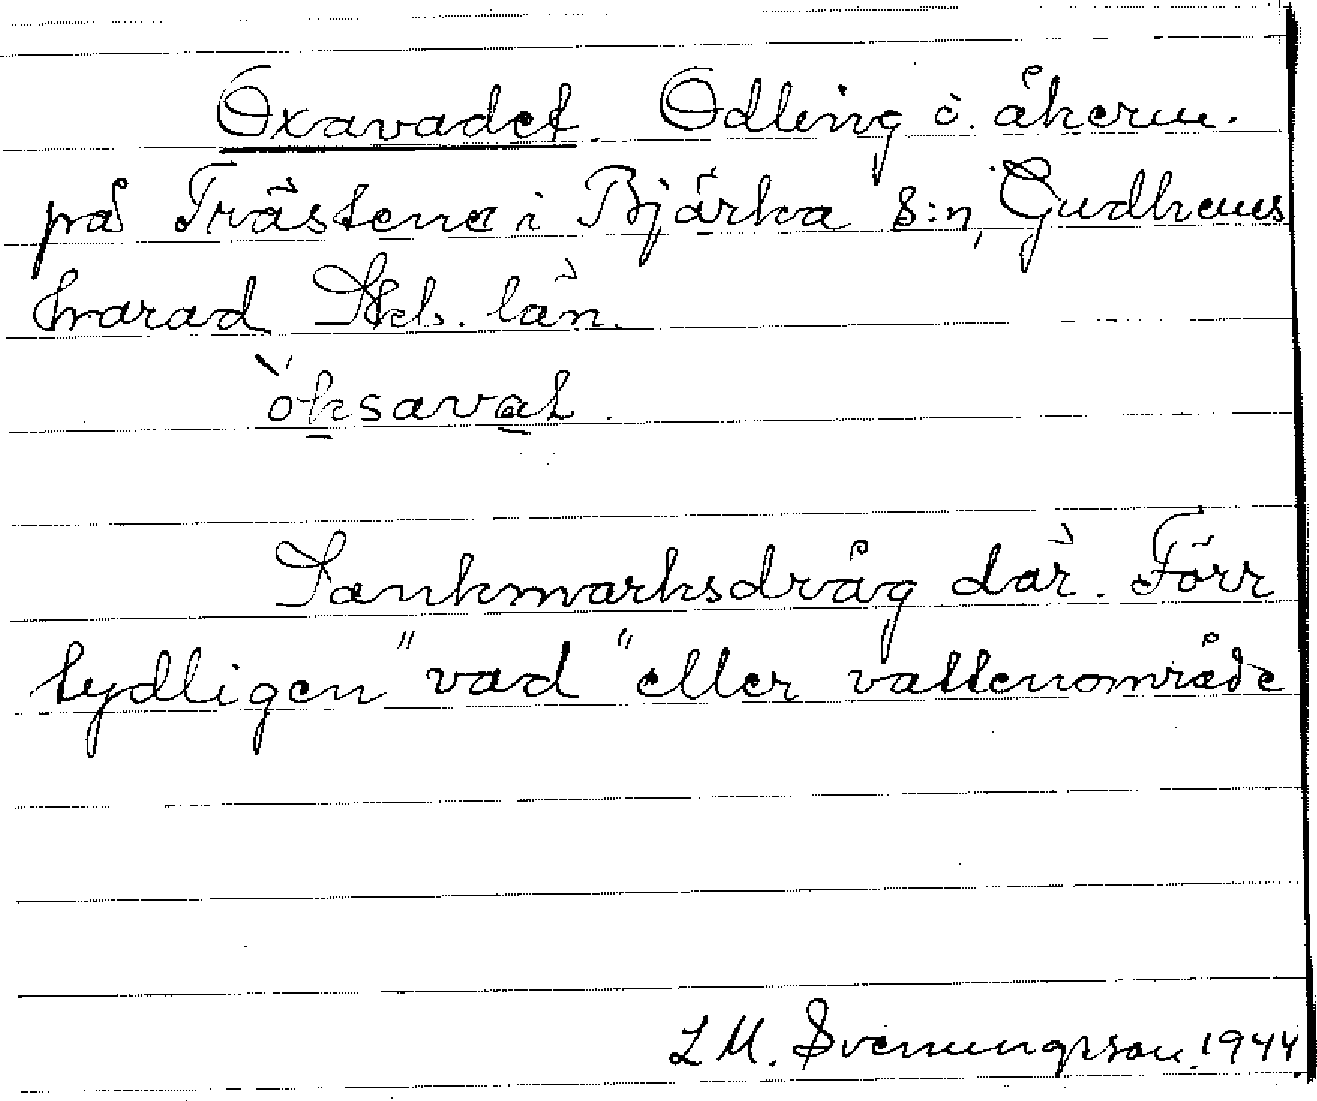 Oxavadet. Odling ö. åkern.
på Trästena i Bjärka s:n, Gudhems
härad Skb. län.
òksavat.
Sankmarksdråg där. Förr
tydligen "vad" eller vattenområde
L M. Svenungsson 1944